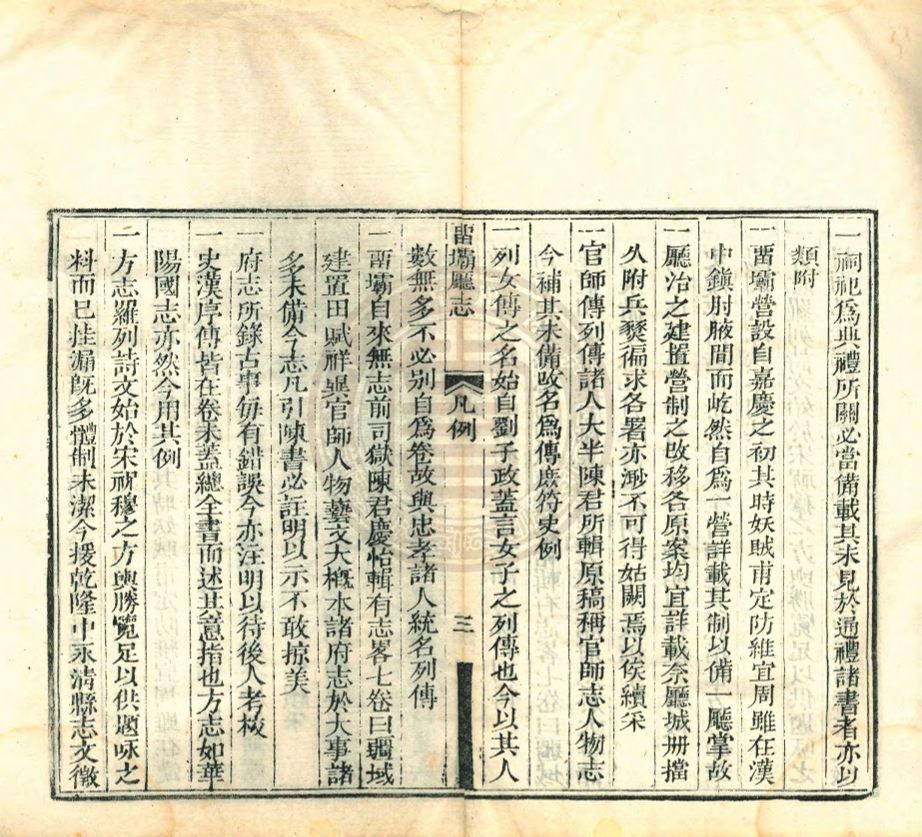 一祠祀爲典禮所關必當備載其未見於通禮諸書者亦以
類附
一畱壩營設自嘉慶之初其時妖賊甫定防維宜周雖在漢
中鎭肘腋間而屹然自爲一營詳載其制以備一廳掌故
一廳治之建置營制之改移各原案均宜詳載奈廳城册擋
久附兵燹徧求各署亦渺不可得姑闕焉以俟續采
一官師傳列傳諸人大半陳君所輯原稿稱官師志人物志
今補其未備改名爲傳庶符史例
一列女傳之名始自劉子政蓋言女子之列傳也今以其人
畱壩廳志
凡例
三
數無多不必別自爲卷故與忠孝諸人統名列傳
一畱壩自來無志前司獄陳君慶怡輯有志畧七卷曰疆域
建置田賦祥異官師人物藝文大概本諸府志於大事諸
多未備今志凡引陳書必註明以示不敢掠美
一府志所錄古事每有錯誤今亦注明以待後人考核
一史漢序傳皆在卷末蓋總全書而述其意指也方志如華
陽國志亦然今用其例
一方志羅列詩文始於宋祝穆之方輿勝覽足以供題咏之
料而已挂漏旣多體制未潔今援乾隆中永清縣志文徵